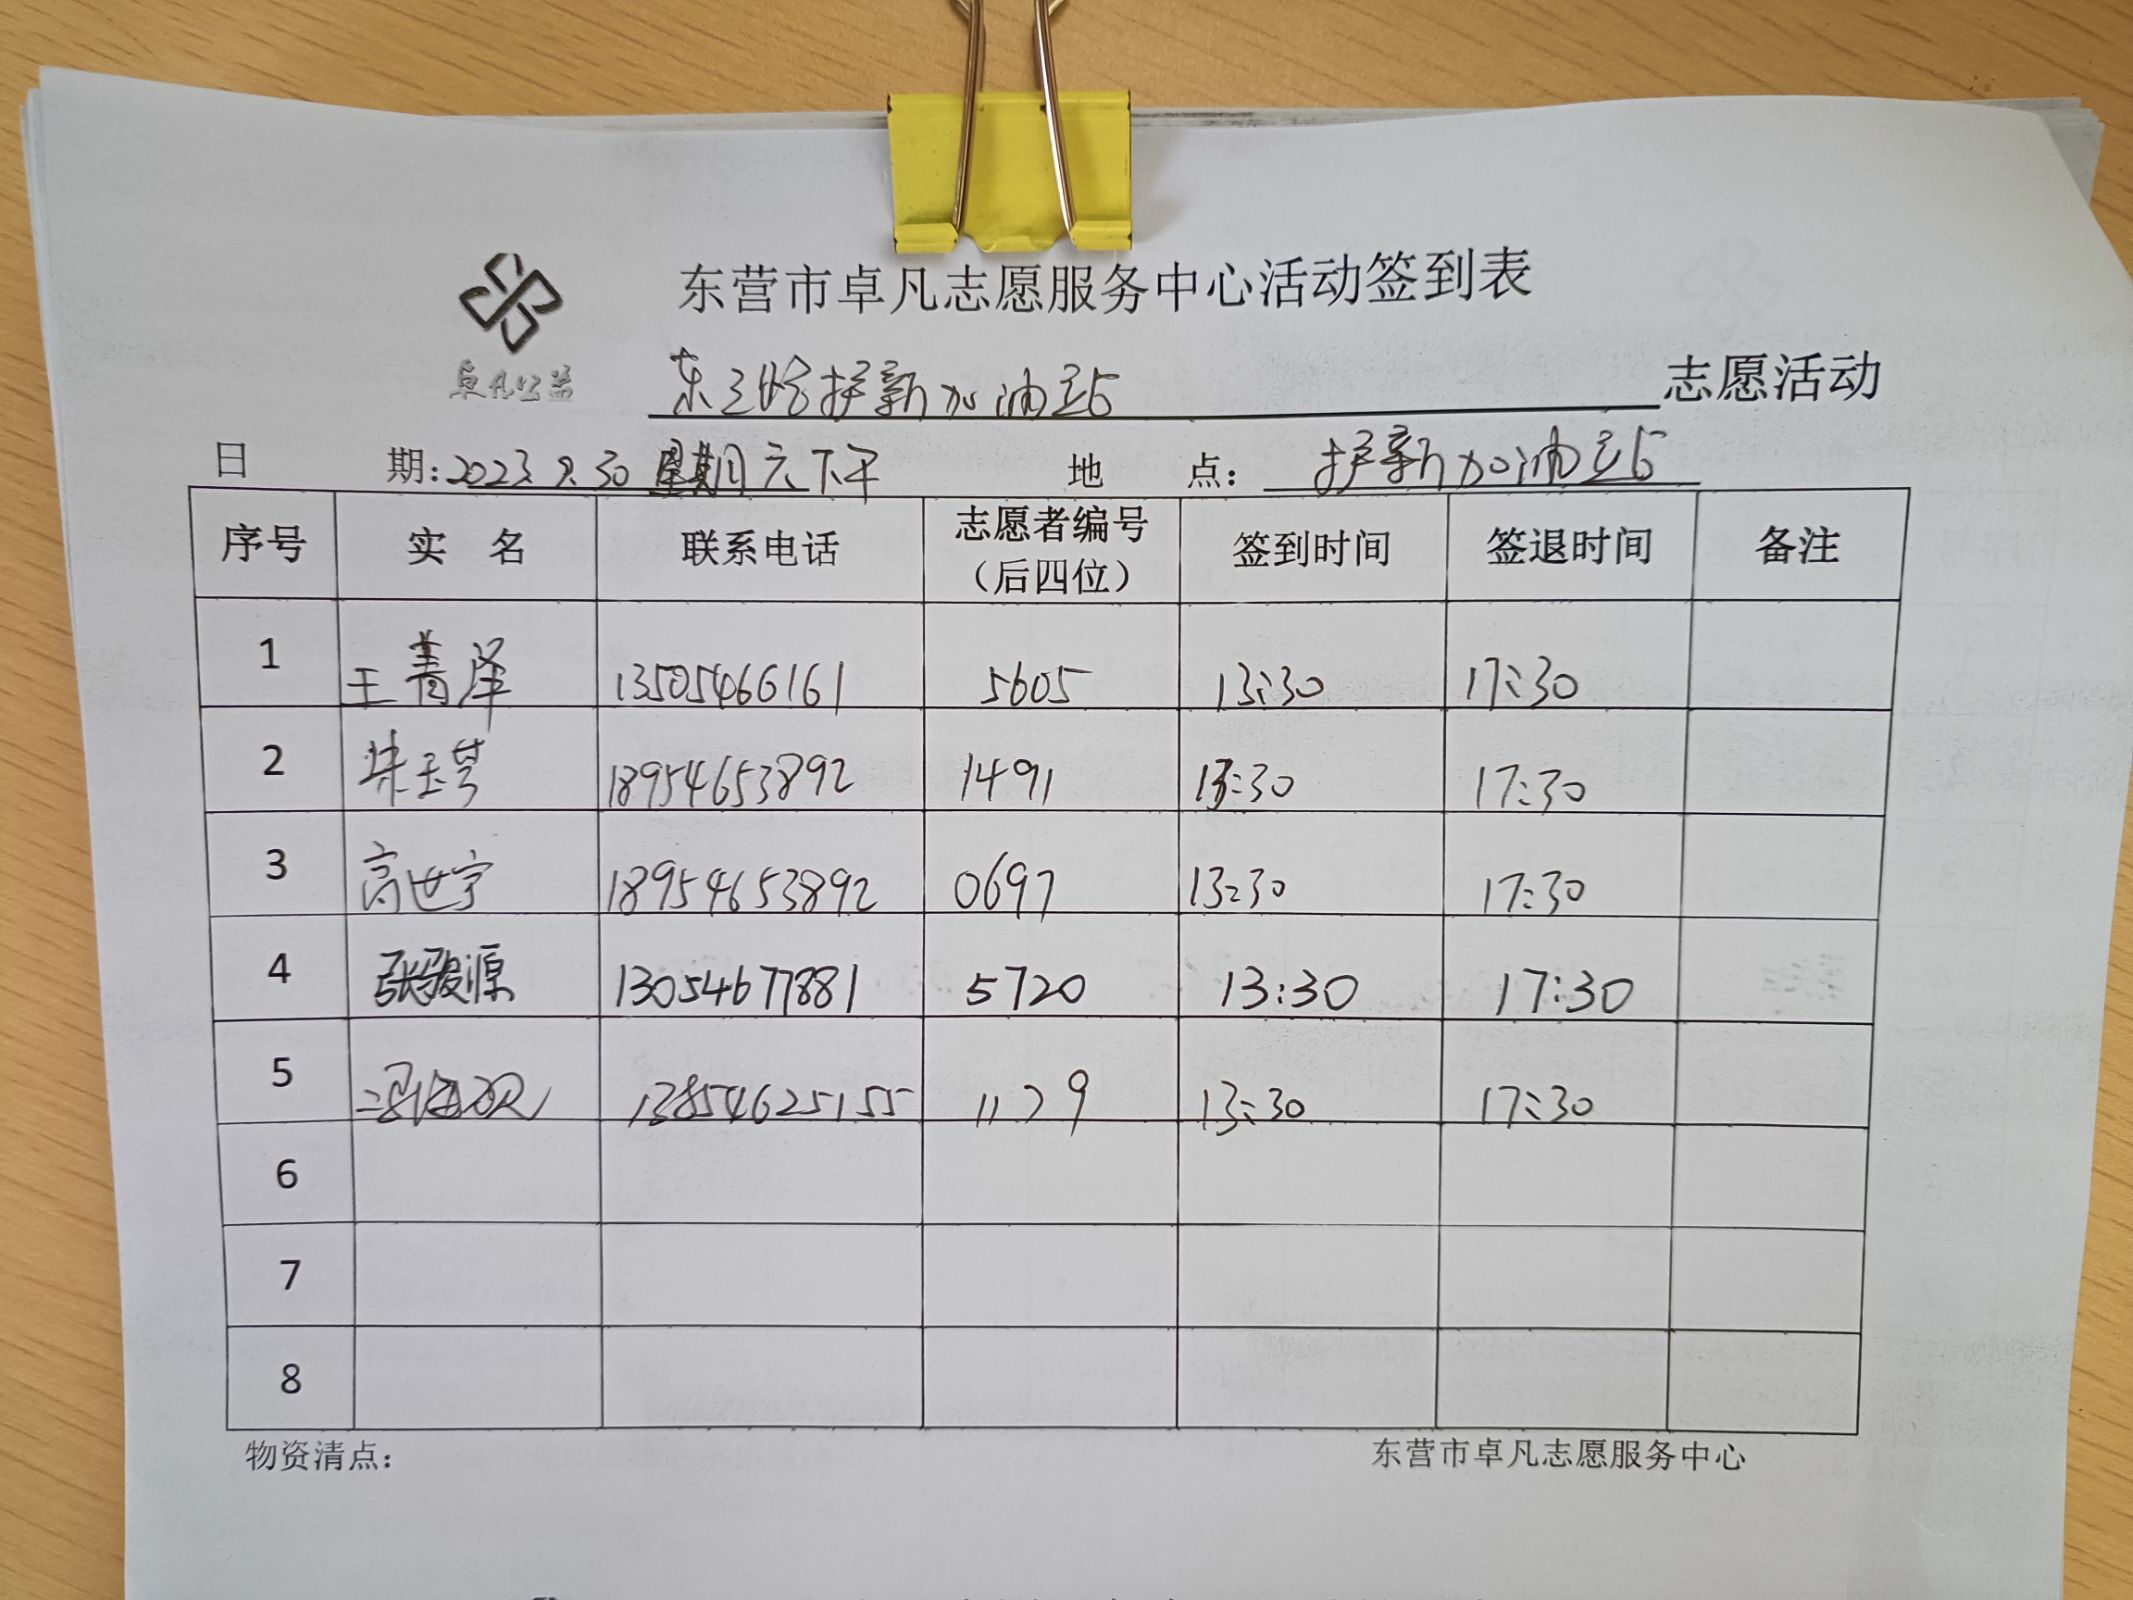 东营市卓凡志愿服务中心活动签到表
卓凡公益
东三路护新加油站 志愿活动
日 期：2023.9.30 星期六下午 地 点：护新加油站
序号 实 名 联系电话 志愿者编号（后四位） 签到时间 签退时间 备注
1 王菁泽 13505466161 5605 13:30 17:30
2 18954653892 1491 13:30 17:30
3 高世宇 18954653892 0697 13:30 17:30
4 张骏源 13054677881 5720 13:30 17:30
5 13854625155 1129 13:30 17:30
6
7
8
物资清点： 东营市卓凡志愿服务中心